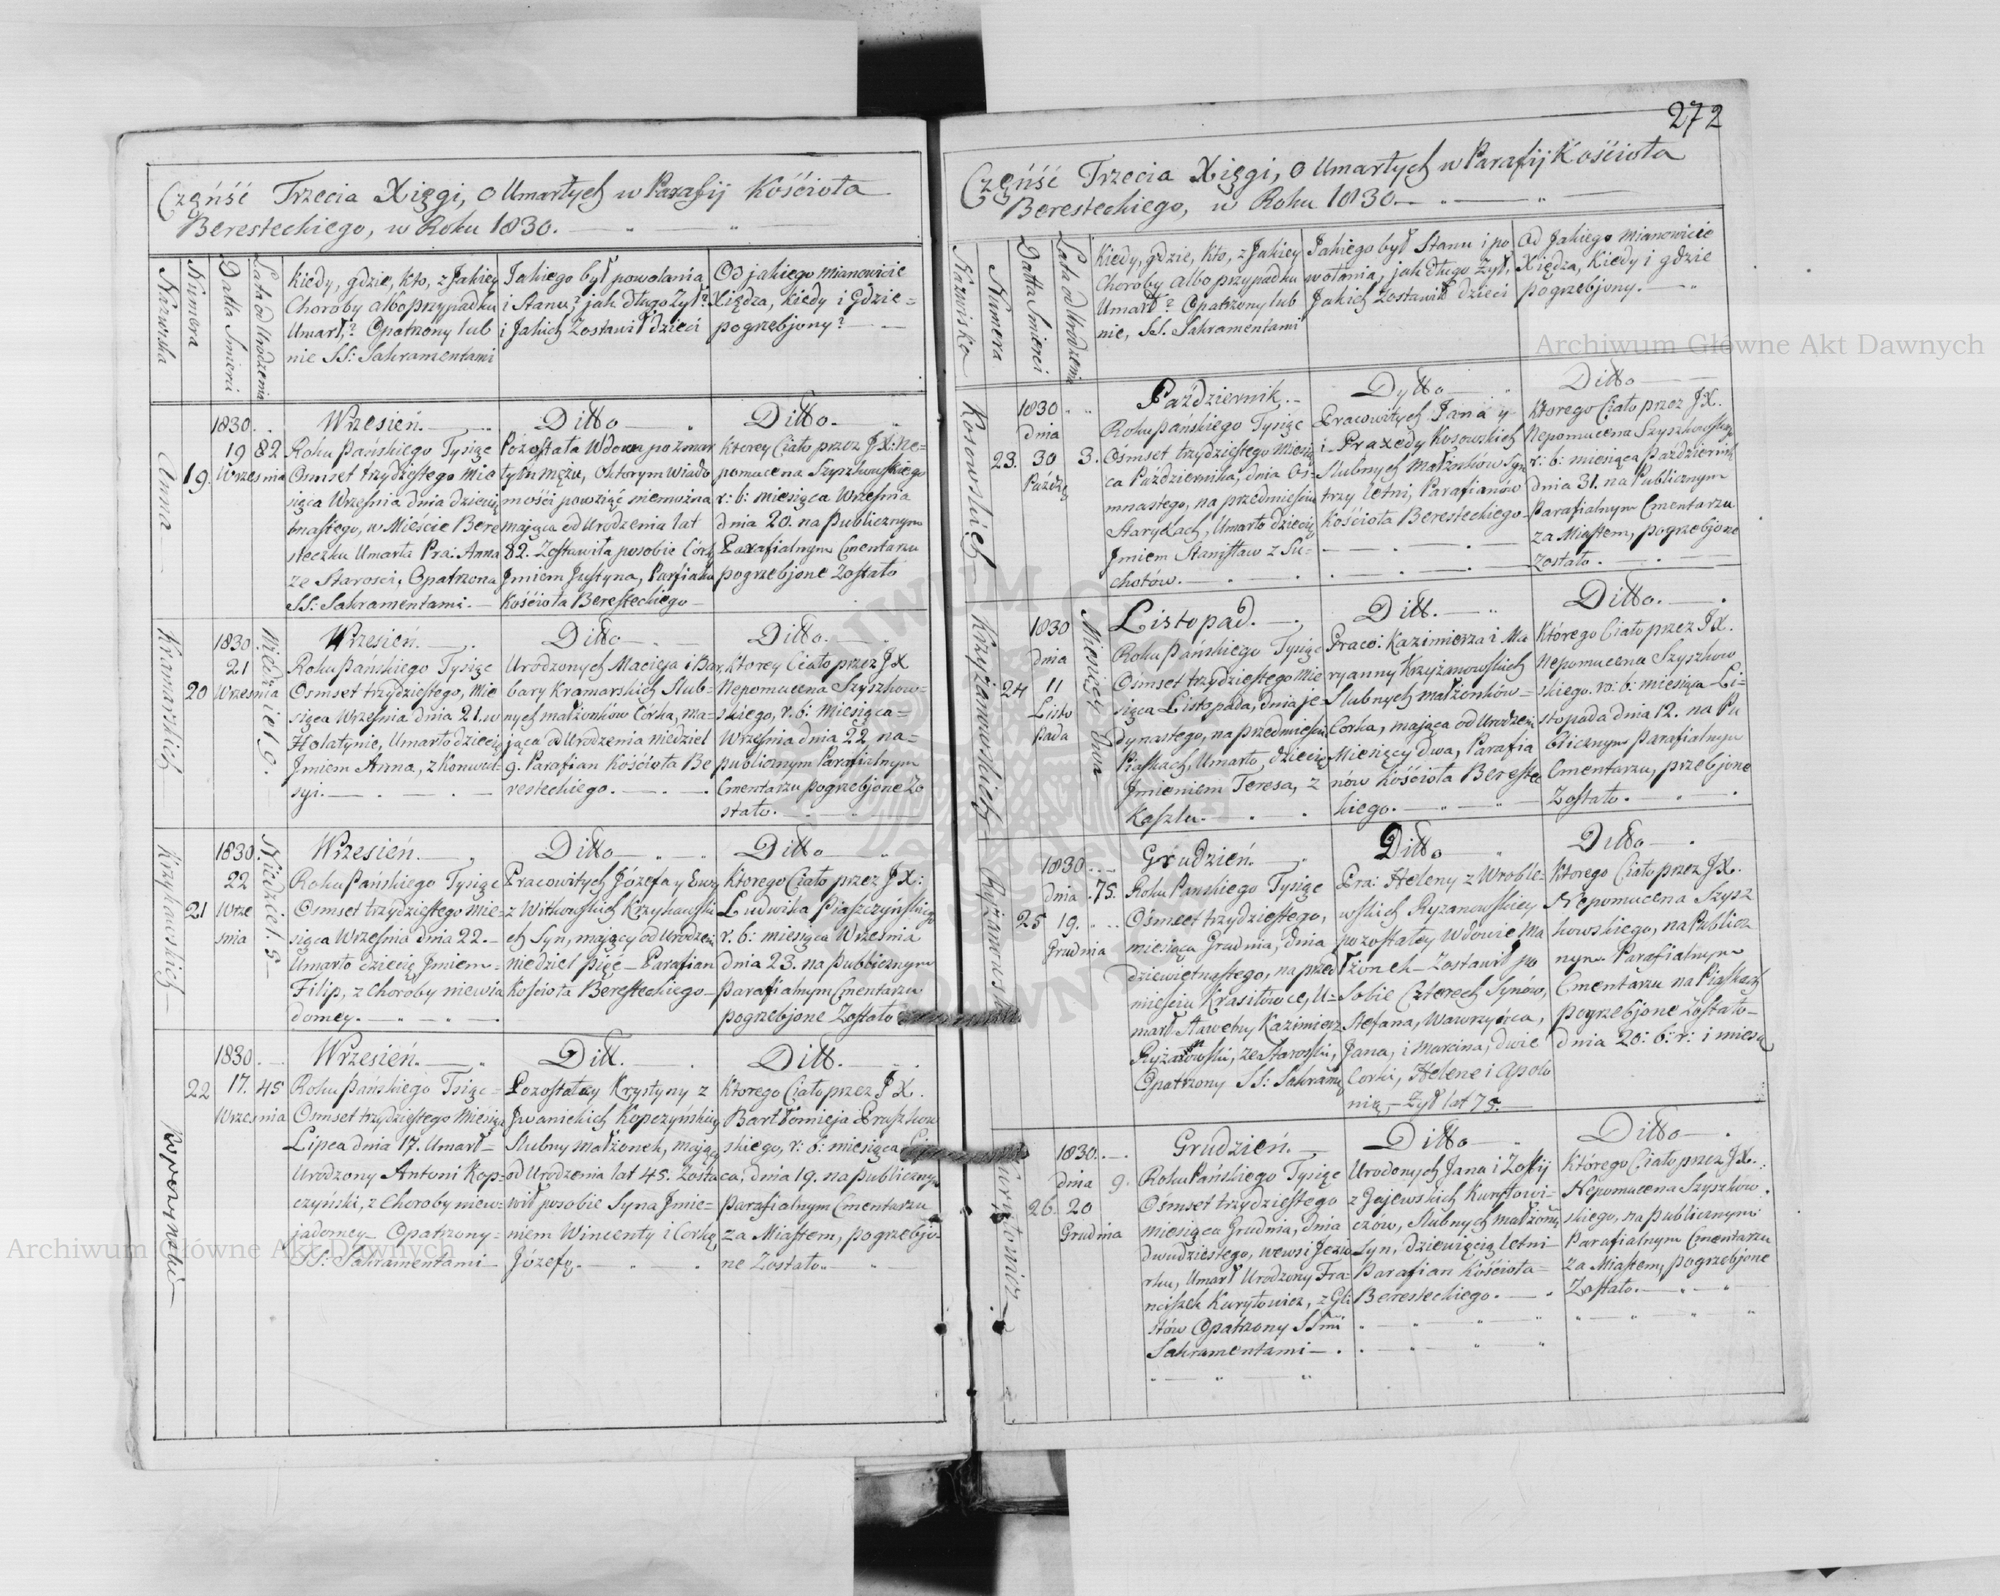 272
Częńść Trzecia Xięgi, o Umarłych w Parafij Kościoła
Beresteckiego, w Roku 1830.
Nazwiska
Numera
Datta Smierci
Lata od Urodzenia
Kiedy, gdzie, kto, z Jakiey
Choroby albo przypadku
Umarł? Opatrzony lub
nie SS: Sakramentami
Jakiego był powołania
i Stanu? jak długo Żył?
i Jakich Zostawił dzieci
Od jakiego mianowicie
Xiędza, kiedy i gdzie
pogrzebjony?
Anna
19.
1830.
19
Wrzesnia
82
Wrzesień.
Roku Pańskiego Tysiąc
Osmset trzydziestego Mie
siąca Września dnia dziewię
tnastego, w Mieście Bere
steczku Umarła Pra: Anna
ze Starosci, Opatrzona
SS: Sakramentami.
Ditto
Pozostała Wdowa po zmar
łym mężu, o którym wiado
mości powziąć niemożna
mająca od Urodzenia lat
82. Zostawiła po sobie Córk
Jmiem Justyna, Parafiank
Kościoła Beresteckiego
Ditto.
Ktorey Ciało przez JX: Ne-
pomucena Szyszkowskiego
r: b: miesiąca Września
dnia 20. na Publicznym
Parafialnym Cmentarzu
pogrzebjone Zostało
Kramarskich
20
1830
21
Wrzesnia
Niedziel 9.
Wrzesień.
Roku Pańskiego Tysiąc
Osmset trzydziestego, Mie
siąca Września dnia 21. w
Holatynie, Umarło dziecię
Jmiem Anna, z Konwul-
syi.
Ditto
Urodzonych Macieja i Bar
bary Kramarskich Slub-
nych małżonków Córka, ma-
jąca od Urodzenia niedziel
9. Parafian Kościoła Be
resteckiego.
Ditto.
Ktorey Ciało przez JX
Nepomucena Szyszkow-
skiego, r. b: Miesiąca
Września dnia 22 na
publicznym Parafialnym
Cmentarzu pogrzebjone Zo
stało.
Krzykawskich
21
1830.
22
Wrze
snia
Niedziel. 5
Wrzesień.
Roku Pańskiego Tysiąc
Osmset trzydziestego Mie-
siąca Września dnia 22.
Umarło dziecię Jmiem
Filip, z Choroby niewia
domey.
Ditto
Pracowitych Józefa y Ewy
z Witkowskich Krzykawski
ch Syn, mający od Urodzen
niedziel pięć Parafian
Kościoła Beresteckiego
Ditto
Ktorego Ciało przez JX:
Ludwika Piaszczyńskiego
r. b: miesiąca Września
dnia 23. na publicznym
Parafialnym Cmentarzu
pogrzebjone Zostało
Kopczynski
22
1830
17.
Wrzesnia
45
Wrzesień.
Roku Pańskiego Tsiąc
Osmset trzydziestego Miesiąc
Lipca dnia 17. Umarł
Urodzony Antoni Kop-
czyński, z Choroby niew-
jadomey Opatrzony
SS: Sakramentami
Ditt.
Pozostałey Krystyny z
Jwanickich Kopczyńskiey
Slubny małżonek, mający
od Urodzenia lat 45. Zosta
wił po sobie Syna Jmie-
niem Wincenty i Corkę
Józefę.
Ditt.
Ktorego Ciało przez JX.
Bartłomieja Pruszkow
skiego, r: b: miesiąca Lip
ca, dnia 19. na publicznym
Parafialnym Cmentarzu
za Miastem, pogrzebjo-
ne Zostało.
Częńść Trzecia Xięgi, o Umarłych w Parafij Kościoła
Beresteckiego, w Roku 1830.
Nazwisko
Numera
Datta Smierci
Lata od Urodzenia
Kiedy, gdzie, kto, z Jakiey
Choroby albo przypadku
Umarł? Opatrzony lub
nie, SS. Sakramentami
Jakiego był Stanu i po
wołania, jak długo żył,
Jakich Zostawił dzieci
Od Jakiego mianowicie
Xiędza, kiedy i gdzie
pogrzebjony.
Kosowskich
23.
1830
dnia
30
Paźdz
3.
Październik.
Roku Pańskiego Tysiąc
Osmset trzydziestego Miesią
ca Października, dnia Os-
mnastego, na przedmieściu
Starykach, Umarło dziecię
Jmiem Stanisław z Su-
chotów.
Dytto
Pracowitych Jana y
i Praxedy Kosowskich
Slubnych Małżonków Syn
trzy letni, Parafianów
Kościoła Beresteckiego
Ditto
Ktorego Ciało przez JX.
Nepomucena Szyszkowskiego
r: b: miesiąca Październik
dnia 31. na Publicznym
Parafialnym Cmentarzu
za Miastem, pogrzebjone
zostało.
Krzyżanowskich
24
1830
dnia
11
Listo
pada
Miesięcy Dwa
Listopad.
Roku Pańskiego Tysiąc
Osmset trzydziestego Mie
siąca Listopada, dnia je-
dynastego, na przedmieściu
Piaskach, Umarło, dziecię
Jmieniem Teresa, z
Kaszlu.
Ditt.
Praco: Kazimierza i Ma
ryanny Krzyżanowskich
Slubnych małżonków
Corka, mająca od Urodzeni
Miesięcy dwa, Parafia
nów Kościoła Bereste
kiego.
Ditto.
Którego Ciało przez JX.
Nepomucena Szyszkow
skiego. ro: b: miesiąca Li-
stopada dnia 12. na Pu
blicznym Parafialnym
Cmentarzu, przebjone
Zostało.
Ryżanowsk
25
1830
dnia
19.
Grudnia
75.
Grudzień.
Roku Panskiego Tysiąc
Ośmset trzydziestego,
miesiąca Grudnia, dnia
dziewiętnastego, na przed
mieściu Krasiłówce, U-
marł Sławetny Kazimierz
Ryżanowski, ze starosci,
Opatrzony SS: Sakrame
Ditto
Pra: Heleny z Wróble-
wskich Ryżanowskiey
pozostałey Wdowie Ma
łżonek Zostawił po
Sobie Czterech Synów,
Stefana, Wawrzyńca,
Jana, i Marcina, dwie
Corki, Helenę i Apolo
nię, Żył lat 75.
Ditto
Ktorego Ciało przez JX.
Nepomucena Szysz
kowskiego, na Publicz
nym Parafialnym
Cmentarzu na Piaskach
pogrzebjone Zostało
dnia 20: b: r: i miesią
Kuryłowicz
26.
1830.
dnia
20
Grudnia
9.
Grudzień.
Roku Pańskiego Tysiąc
Ośmset trzydziestego
miesiąca Grudnia, dnia
dwudziestego, we wsi Jezio
rku, Umarł Urodzony Fra-
nciszek Kuryłowicz, z Gli
stów Opatrzony SSmi
Sakramentami
Ditto
Urodonych Jana i Zofij
z Gajewskich Kuryłowi-
czów, Slubnych małżonk
Syn, dziewięcią letni
Parafian Kościoła
Beresteckiego.
Ditto
Którego Ciało przez JX.
Nepomucena Szyszkow
skiego, na publicznym
Parafialnym Cmentarzu
Za Miastem, pogrzebjone
Zostało.
Archiwum Główne Akt Dawnych
Archiwum Główne Akt Dawnych